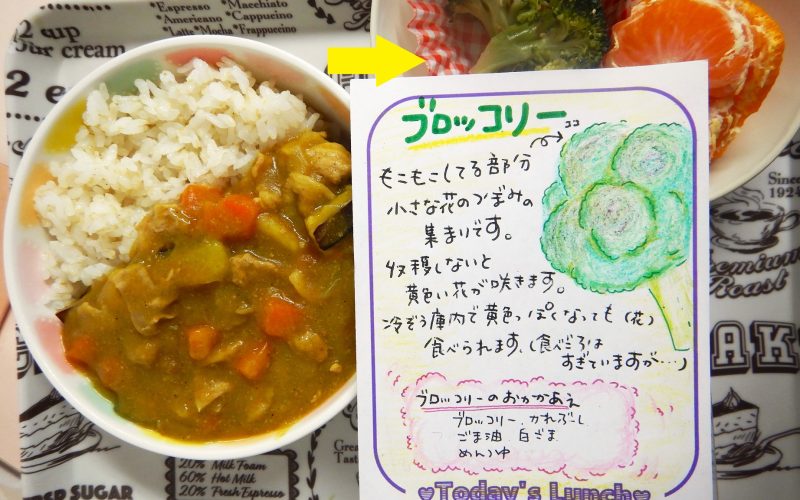 Espresso
Macchiato
Americano
Cappucino
Latte Mocha Frappucino
2 cup
our cream
2 e
ブロッコリー
ココ
もこもこしてる部分
小さな花のつぼみの
集まりです。
収穫しないと
黄色い花が咲きます。
冷ぞう庫内で黄色っぽくなっても(花)
食べられます、(食べごろは
すぎていますが…)
ブロッコリーのおかかあえ
ブロッコリー、かれぶーし
ごま油 白ごま
めんつゆ
Today's Lunch
Since
1924
Premium
Roast
AK
20% Milk Foam
60% Hot Milk
20% Fresh Espresso
SUGAR